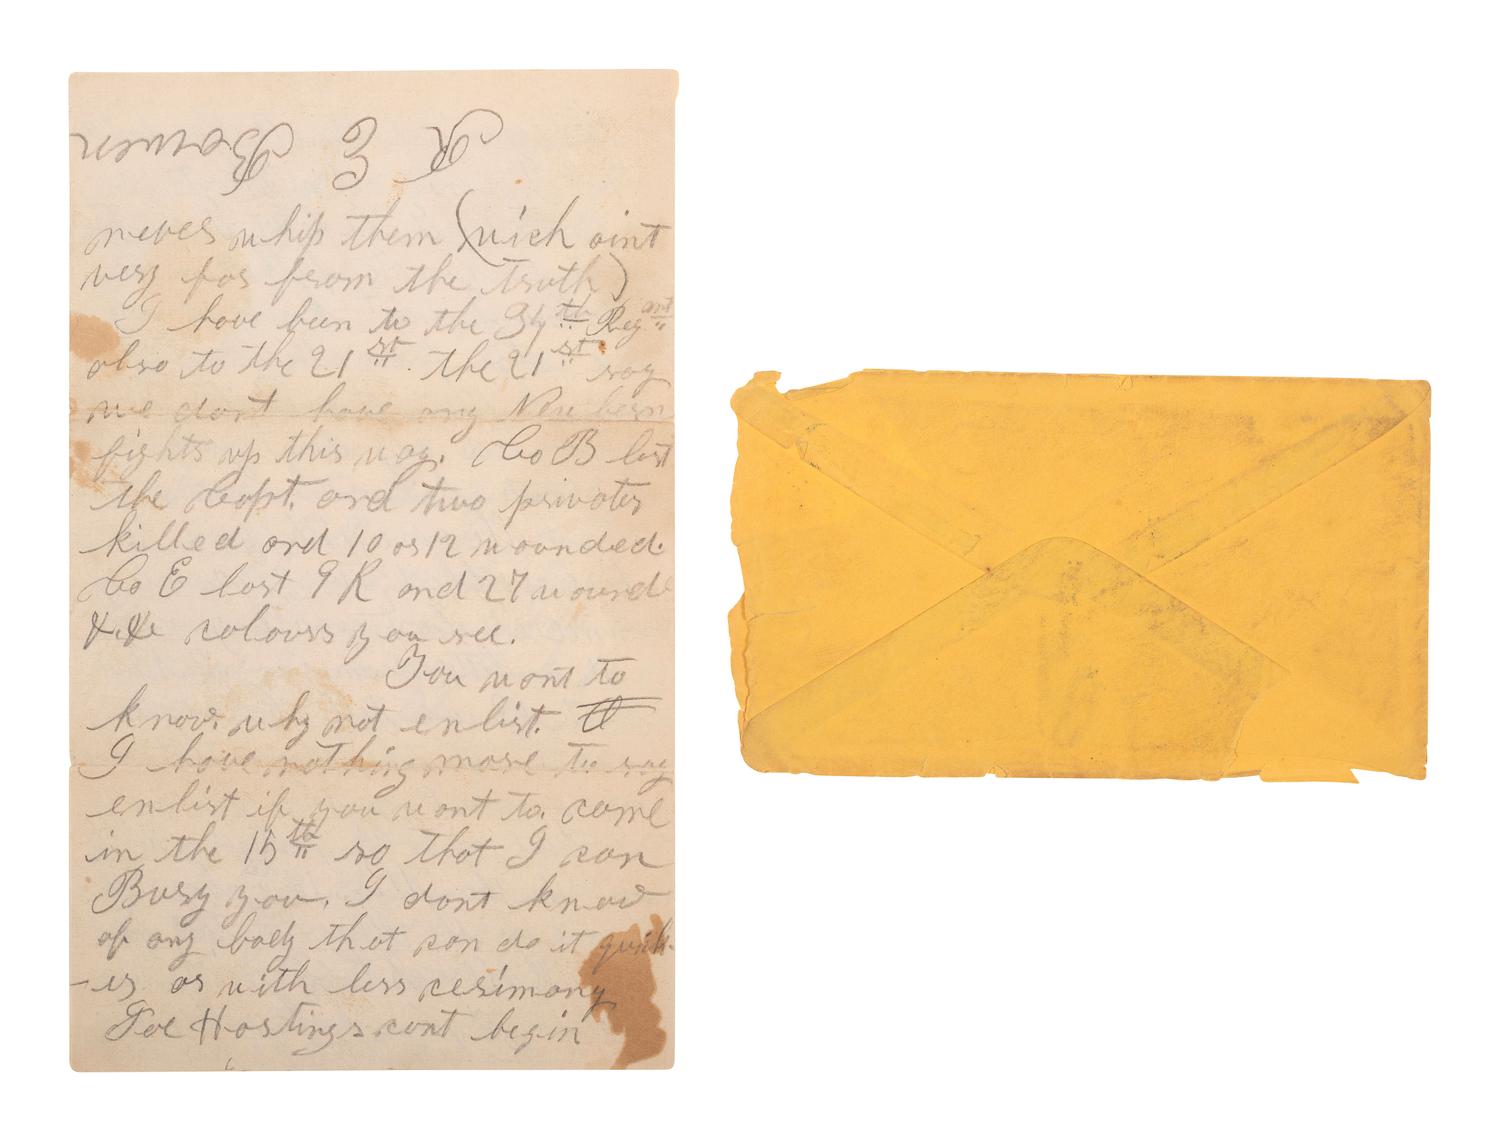 R E Bowen
never whip them (wich aint
very far from the truth)
I have been to the 34th Regant
also to the 21st. the 21st say
we dont have any New bern
fights up this way. Co B lost
the Capt. and two privates
killed and 10 or 12 wounded.
Co E lost 9 K and 27 wound
&c &c colours you see.
You want to
know why not enlist.
I have nothing more to say
enlist if you want to. come
in the 15th so that I can
Bury you. I dont know
of any body that can do it quick-
-er or with less cerimony
Joe Hastings cant begin